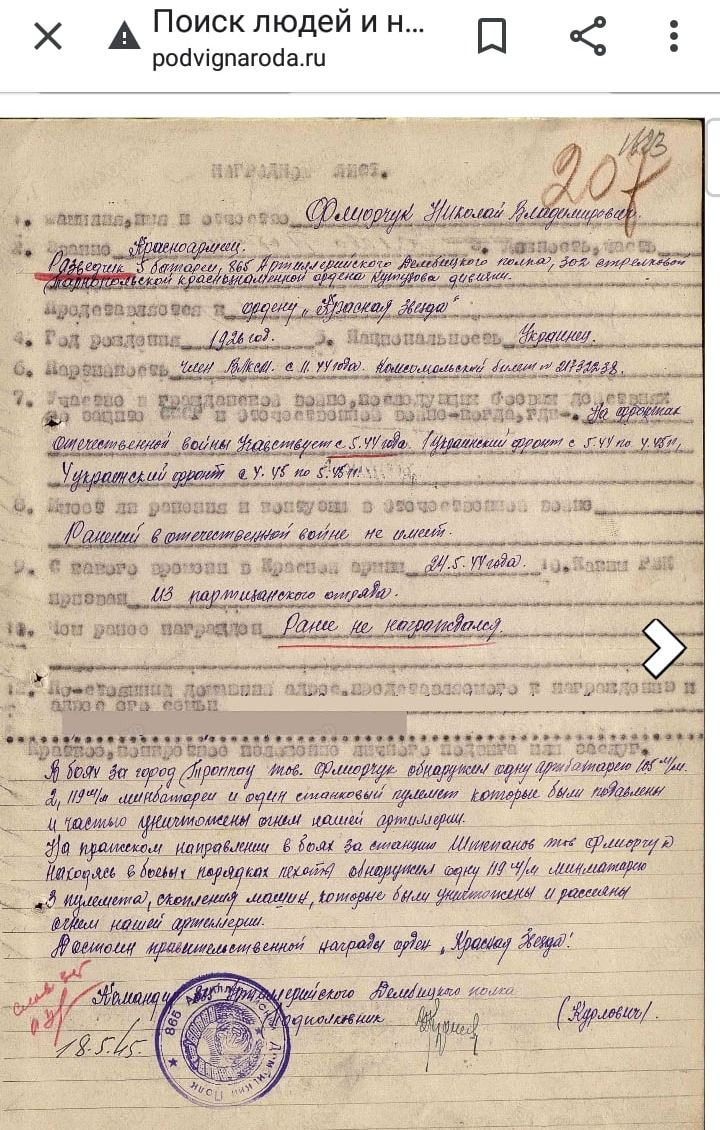 Поиск людей и н...
podvignaroda.ru
1623
207
НАГРАДНОЙ ЛИСТ.
1. Фамилия, имя и отчество Флиорчук Николай Владимирович.
2. Звание Красноармеец. 3. Должность, часть
Разведчик 5 батареи, 865 Артиллерийского Дембицкого полка, 302 стрелковой
Тарнопольской краснознаменной ордена Кутузова дивизии.
Представляется к ордену „Красная Звезда"
4. Год рождения 1926 год. 5. Национальность Украинец.
6. Партийность член ВЛКСМ. с 11.44 года. Комсомольский билет № 21732238.
7. Участие в гражданской войне, последующих боевых действиях
по защите СССР и отечественной войне-когда, где-. На фронтах
отечественной войны участвует с 5.44 года. 1 украинский фронт с 5.44 по 4.45 г,
4 украинский фронт с 4.45 по 5.45 г.
8. Имеет ли ранения и контузии в отечественной войне
Ранений в отечественной войне не имеет.
9. С какого времени в Красной армии 24.5.44 года. 10. Каким РВК
призван из партизанского отряда.
11. Чем ранее награжден Ранее не награждался.
12. Постоянный домашний адрес, представляемого к награждению и
адрес его семьи
Краткое, конкретное изложение личного подвига или заслуг.
В боях за город Троппау тов. Флиорчук обнаружил одну артбатарею 105 м/м.
2, 119 м/м минбатареи и один станковый пулемет которые были подавлены
и частью уничтожены огнем нашей артиллерии.
На пражском направлении в боях за станцию Штепанов тов Флиорчук
находясь в боевых порядках пехоты обнаружил одну 119 м/м минматарею
3 пулемета, скопления машин, которые были уничтожены и рассеяны
огнем нашей артеллерии.
Достоин правительственной награды орден „Красная Звезда".
Командир 865 Артиллерийского Дембицкого полка
подполковник (Курлович).
18.5.45.
865 Артиллерийский Дембицкий Полк